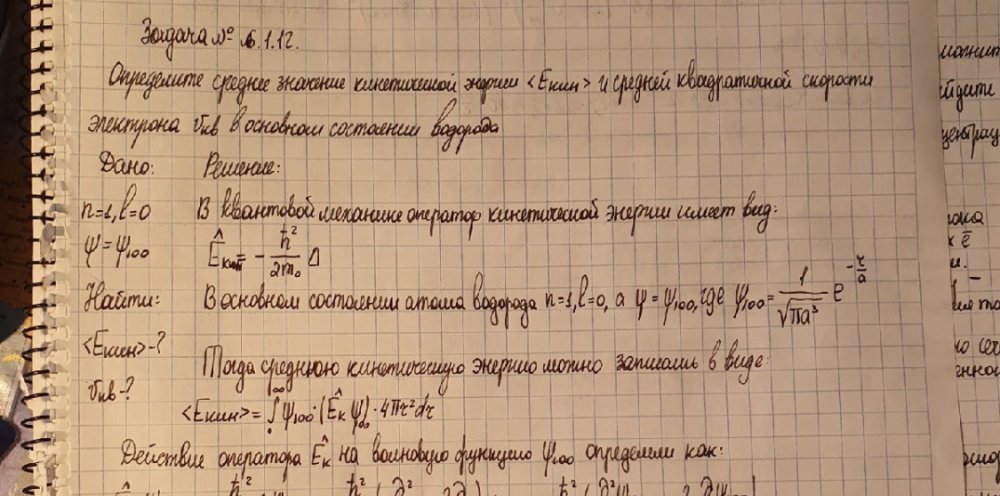 Задача № 6.1.12.
Определите среднее значение кинетической энергии <Eкин> и средней квадратичной скорости
электрона υкв в основном состоянии водорода
Дано: Решение:
n=1, l=0 В квантовой механике оператор кинетической энергии имеет вид:
ψ=ψ₁₀₀ Êкин = - ħ²/2m₀ Δ
Найти: В основном состоянии атома водорода n=1, l=0, а ψ=ψ₁₀₀, где ψ₁₀₀ = 1/√(πa³) e^(-r/a)
<Eкин>-?
Тогда среднюю кинетическую энергию можно записать в виде:
υкв-?
<Eкин> = ∫₀^∞ ψ₁₀₀·(Êк ψ₁₀₀)·4πr²dr
Действие оператора Êк на волновую функцию ψ₁₀₀ определим как: